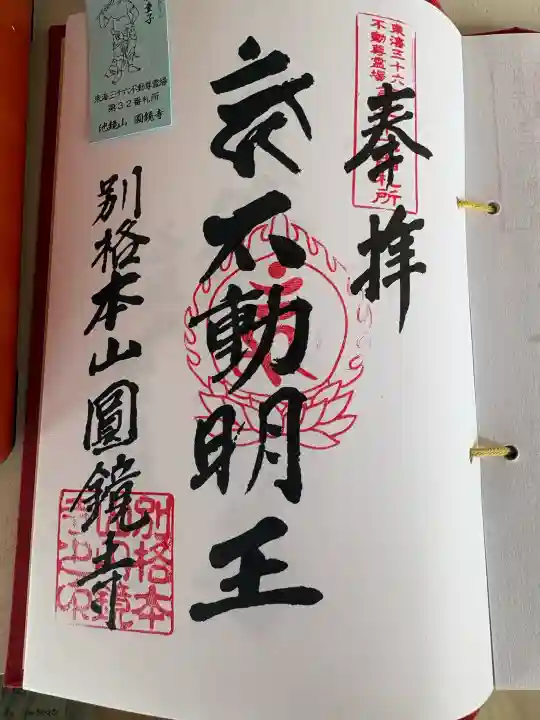 奉拝
不動明王
別格本山圓鏡寺
東海三十六
不動尊霊場
札所
童子
東海三十六不動尊霊場
第32番札所
池鏡山 圓鏡寺
別格本